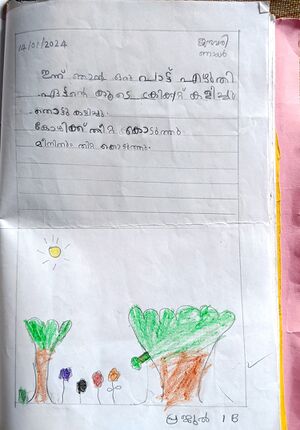 14/01/2024
ജനുവരി
ഞായർ
ഇന്ന് ഞാൻ ഒരു പാട്ട് എഴുതി
ഏട്ടൻ്റെ കൂടെ ക്രിക്കറ്റ് കളിച്ചു.
തൊട്ടു കളിച്ചു.
കോഴിക്ക് തീറ്റ കൊടുത്തു.
മീനിനും തീറ്റ കൊടുത്തു.
1 B